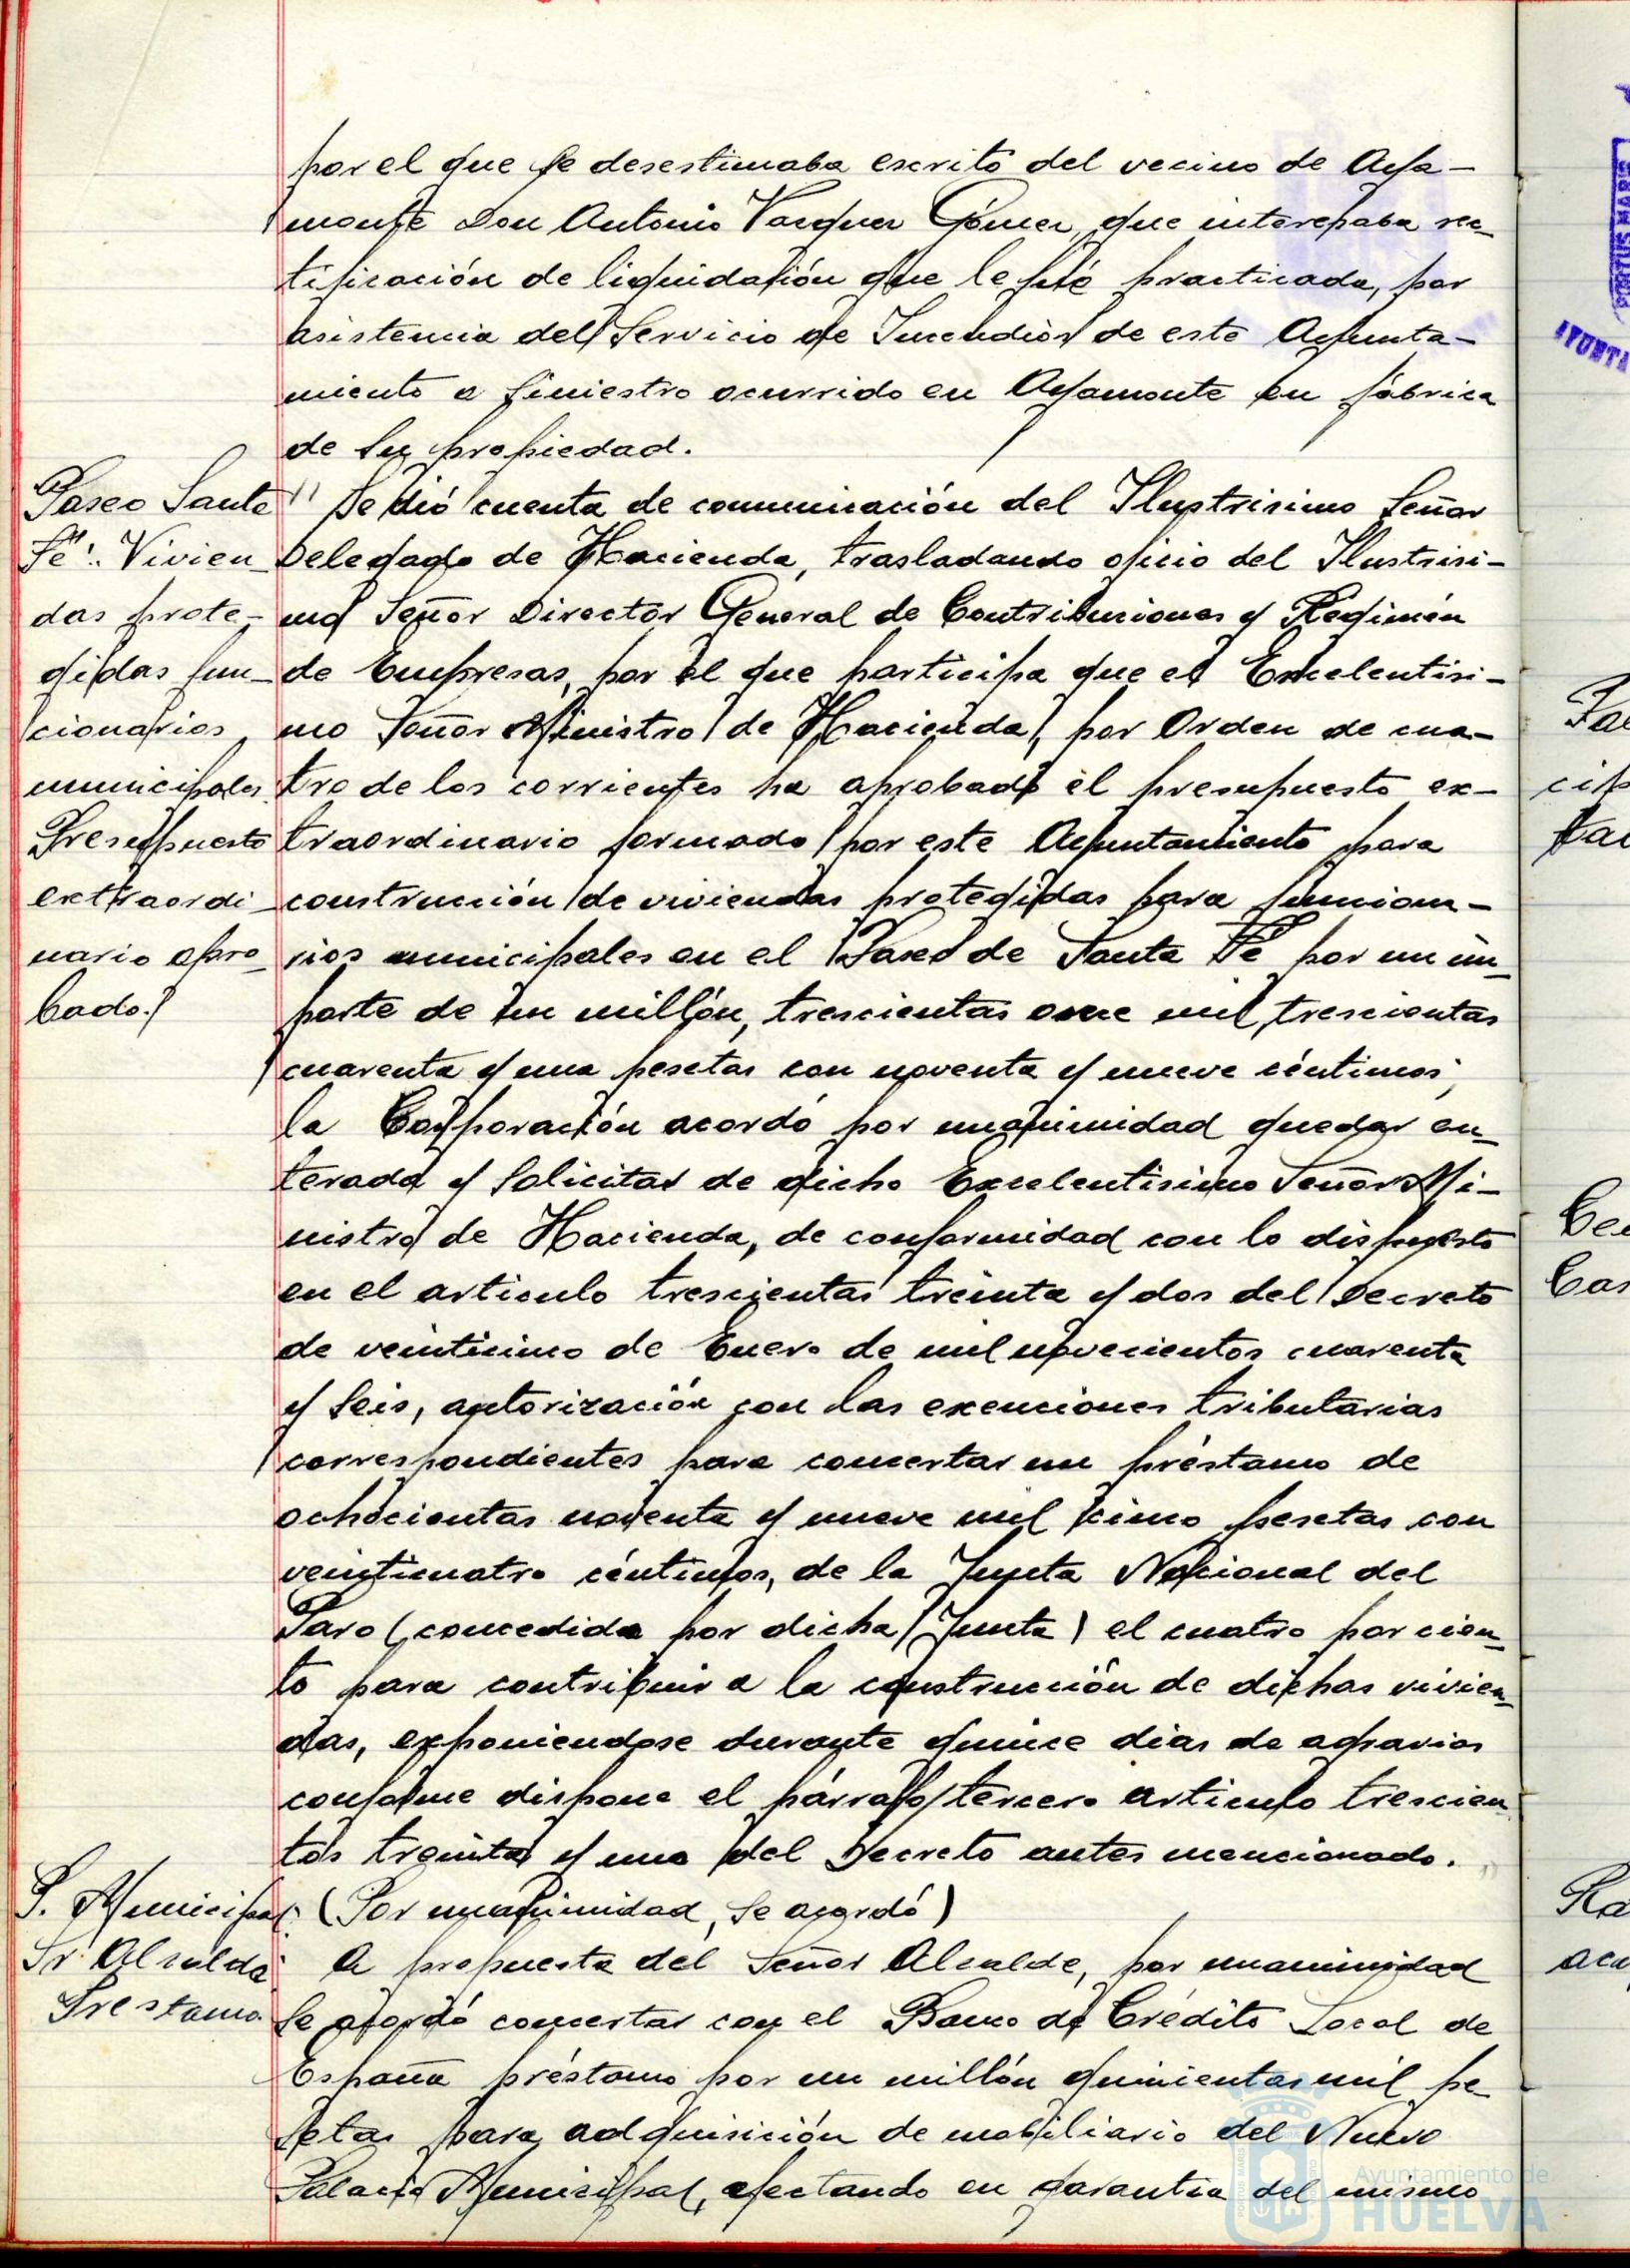 por el que se desestimaba escrito del vecino de Aya-
monte Don Antonio Vazquez Gómez, que interesaba rec-
tificación de liquidación que le fué practicada, por
asistencia del Servicio de Incendios de este Ayunta-
miento a siniestro ocurrido en Ayamonte en fábrica
de su propiedad.
Paseo Santa
Fé". Vivien-
das prote-
gidas fun-
cionarios
municipales.
Presupuesto
extraordi-
nario apro-
bado.
" Se dió cuenta de comunicación del Ilustrisimo Señor
Delegado de Hacienda, trasladando oficio del Ilustrisi-
mo Señor Director General de Contribuciones y Regimén
de Empresas, por el que participa que el Excelentisi-
mo Señor Ministro de Hacienda, por Orden de cua-
tro de los corrientes ha aprobado el presupuesto ex-
traordinario formado por este Ayuntamiento para
construcción de viviendas protegidas para funciona-
rios municipales en el Paseo de Santa Fé por un im-
porte de un millón, trescientas once mil, trescientas
cuarenta y una pesetas con noventa y nueve céntimos;
la Corporación acordó por unanimidad quedar en-
terada y solicitar de dicho Excelentisimo Señor Mi-
nistro de Hacienda, de conformidad con lo dispuesto
en el articulo trescientas treinta y dos del Decreto
de veinticinco de Enero de mil novecientos cuarenta
y seis, autorización con las exenciones tributarias
correspondientes para concertar un préstamo de
ochocientas noventa y nueve mil cinco pesetas con
veinticuatro céntimos, de la Junta Nacional del
Paro (concedida por dicha Junta) el cuatro por cien-
to para contribuir a la construcción de dichas vivien-
das, exponiendose durante quince dias de agravios
conforme dispone el párrafo tercero articulo trescien-
tos treinta y uno del Decreto antes mencionado. "
P. Municipal.
Sr. Alcalde
Prestamo.
(Por unanimidad, se acordó)
A propuesta del Señor Alcalde, por unanimidad
se acordó concertar con el Banco de Crédito Local de
España préstamo por un millón quinientas mil pe-
setas para adquisición de mobiliario del Nuevo
Palacio Municipal, afectando en garantia del mismo
PORTUS MARIS
AYUNTA
Ayuntamiento de
HUELVA